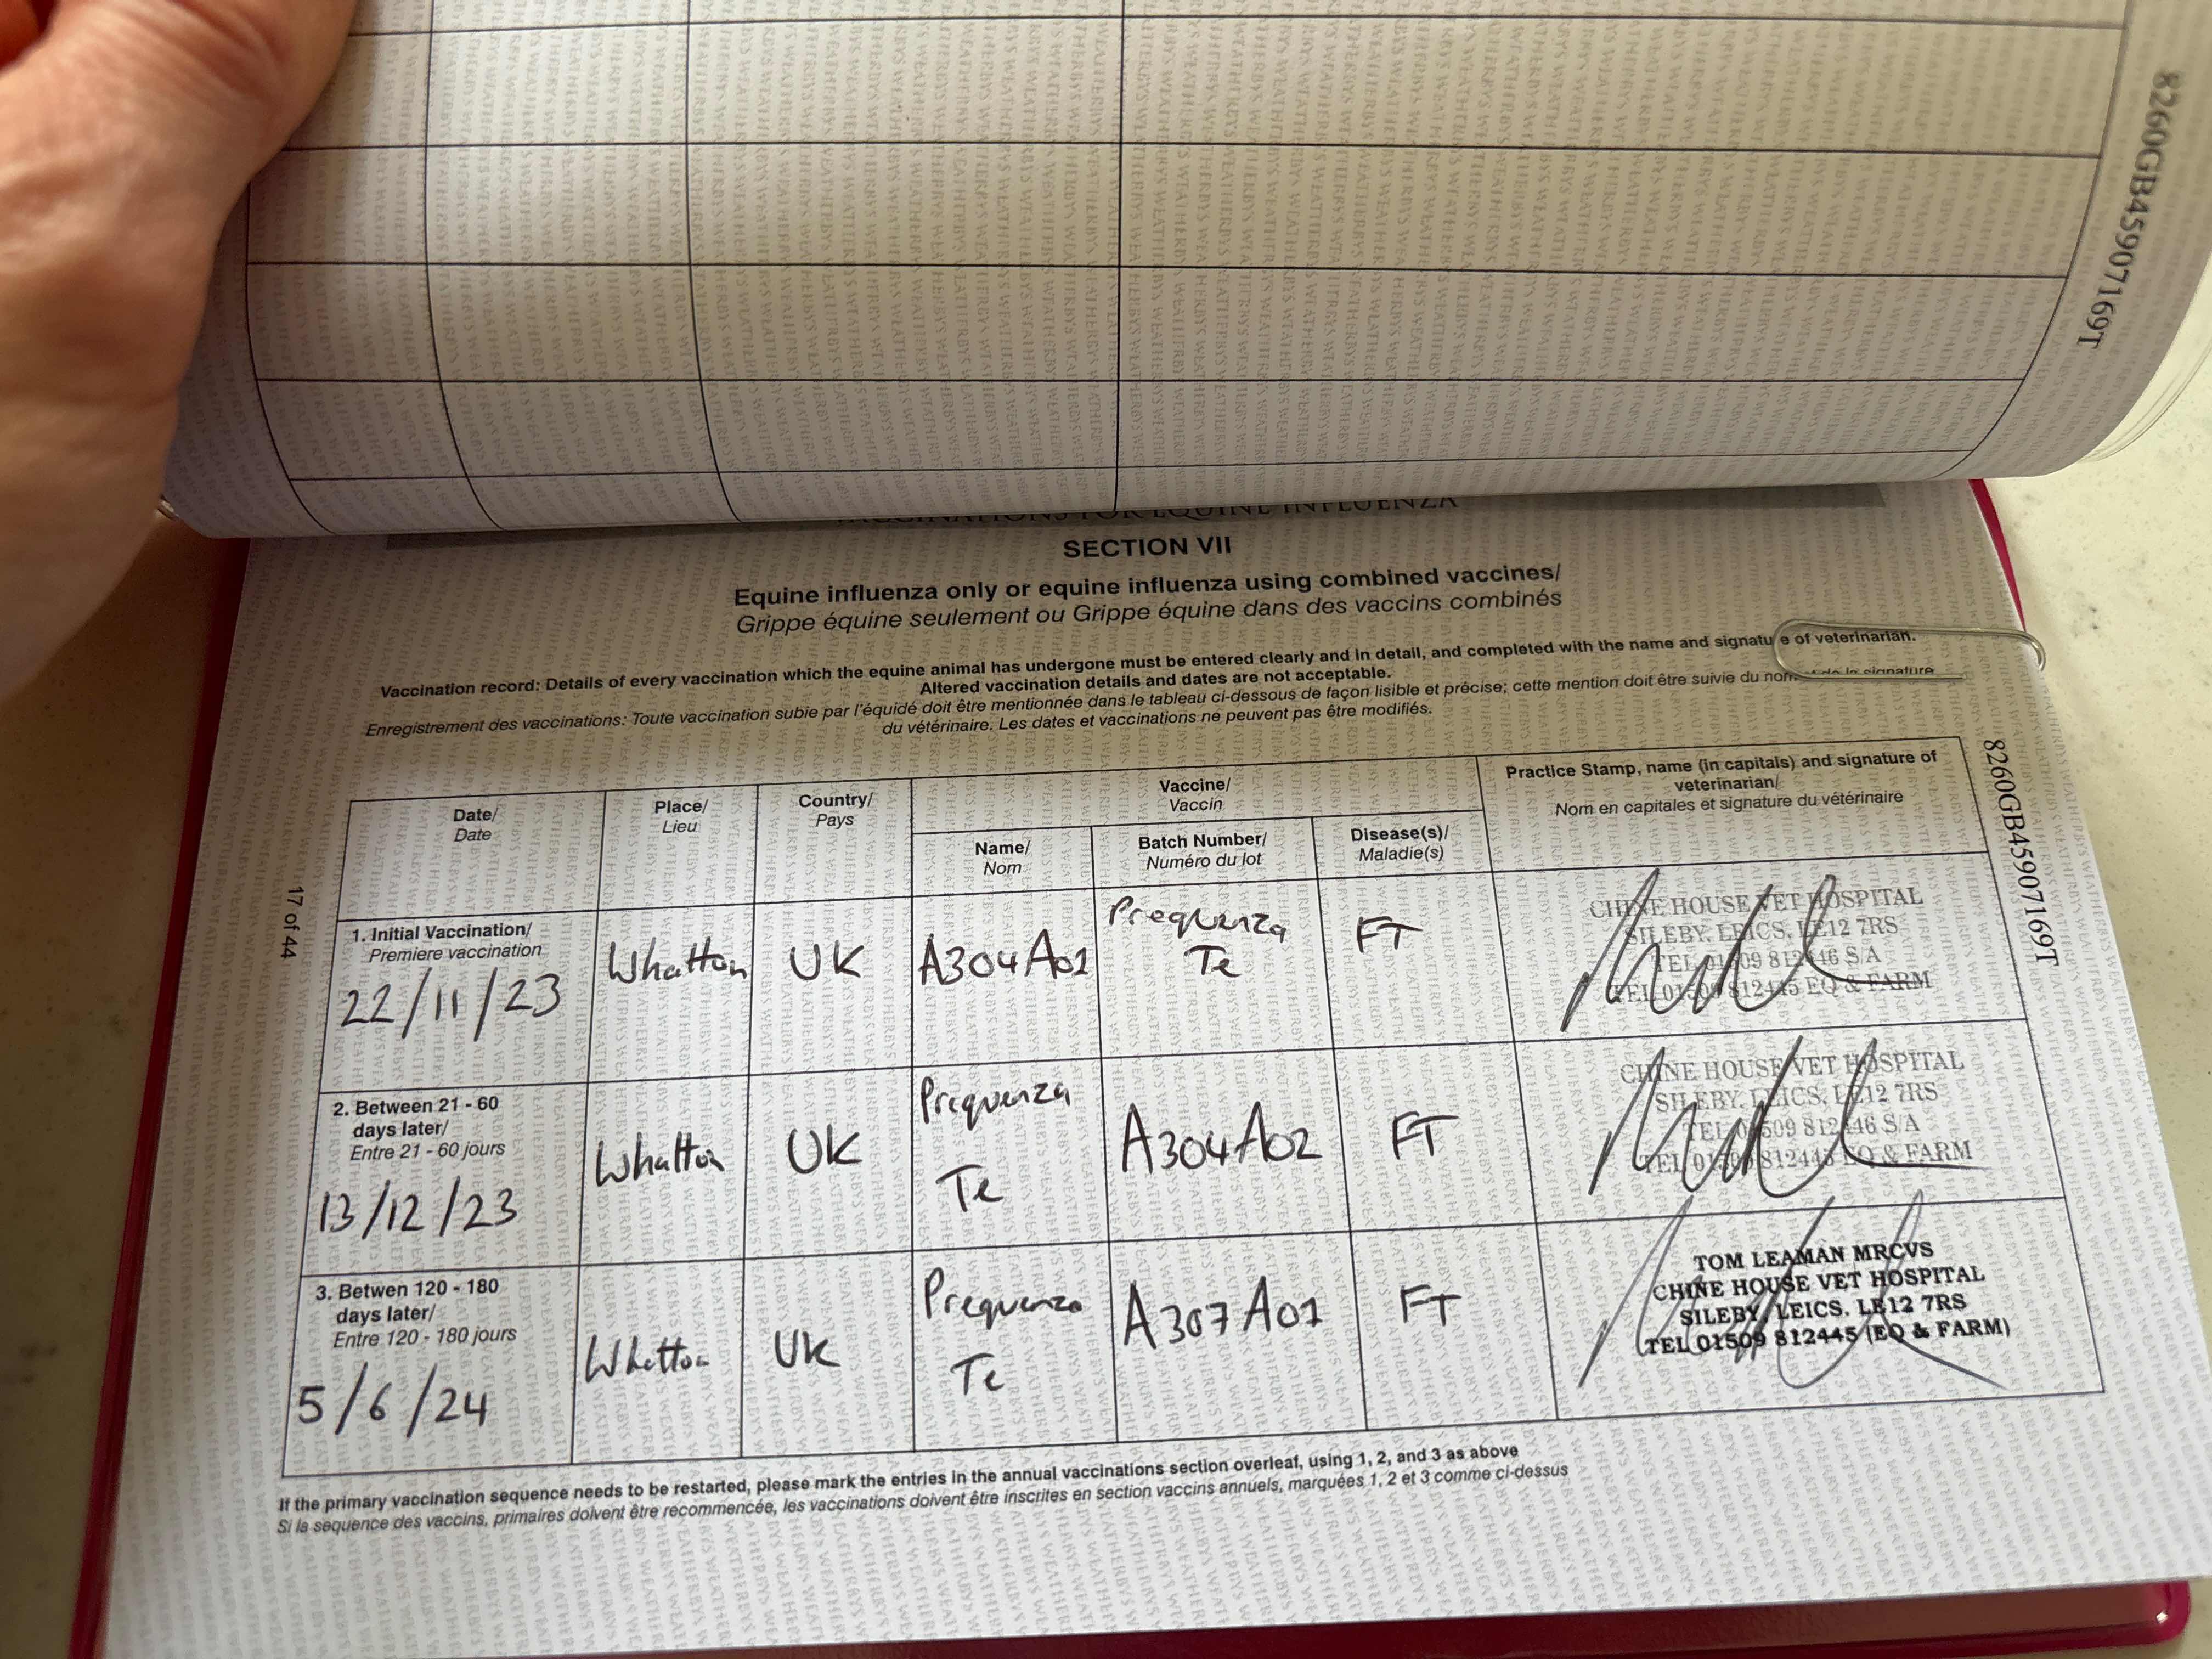 8260GB45907169T
VACCINATIONS FOR EQUINE INFLUENZA
SECTION VII
Equine influenza only or equine influenza using combined vaccines/
Grippe équine seulement ou Grippe équine dans des vaccins combinés
Vaccination record: Details of every vaccination which the equine animal has undergone must be entered clearly and in detail, and completed with the name and signature of veterinarian.
Altered vaccination details and dates are not acceptable.
Enregistrement des vaccinations: Toute vaccination subie par l'équidé doit être mentionnée dans le tableau ci-dessous de façon lisible et précise; cette mention doit être suivie du nom et de la signature
du vétérinaire. Les dates et vaccinations ne peuvent pas être modifiés.
8260GB45907169T
17 of 44
Date/
Date
Place/
Lieu
Country/
Pays
Vaccine/
Vaccin
Name/
Nom
Batch Number/
Numéro du lot
Disease(s)/
Maladie(s)
Practice Stamp, name (in capitals) and signature of
veterinarian/
Nom en capitales et signature du vétérinaire
1. Initial Vaccination/
Premiere vaccination
22/11/23
Whatton
UK
A304A01
Prequenza
Te
FT
CHINE HOUSE VET HOSPITAL
SILEBY, LEICS, LE12 7RS
TEL 01509 812446 S/A
TEL 01509 812445 EQ & FARM
2. Between 21 - 60
days later/
Entre 21 - 60 jours
13/12/23
Whatton
UK
Prequenza
Te
A304A02
FT
CHINE HOUSE VET HOSPITAL
SILEBY, LEICS, LE12 7RS
TEL 01509 812446 S/A
TEL 01509 812445 EQ & FARM
3. Betwen 120 - 180
days later/
Entre 120 - 180 jours
5/6/24
Whatton
UK
Prequenza
Te
A307A01
FT
TOM LEAMAN MRCVS
CHINE HOUSE VET HOSPITAL
SILEBY, LEICS. LE12 7RS
TEL 01509 812445 (EQ & FARM)
If the primary vaccination sequence needs to be restarted, please mark the entries in the annual vaccinations section overleaf, using 1, 2, and 3 as above
Si la sequence des vaccins, primaires doivent être recommencée, les vaccinations doivent être inscrites en section vaccins annuels, marquées 1, 2 et 3 comme ci-dessus